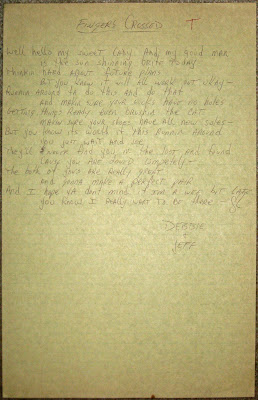 FINGERS CROSSED T
Well hello my sweet lady and my good man
is the sun shining brite today
Thinkin hard about future plans
but you know it will all work out okay -
Runnin around to do this and do that
and makin sure your socks have no holes
Gettin things ready even callin the cat
makin sure your shoes have all new soles -
But you know its worth it this runnin around
you just wait and see
They'll never find you in the lost and found
cause you are tuned completely -
The both of you are really great
and gonna make a perfect pair
And I hope ya dont mind if I'm a wee bit late
you know I really want to be there -
DEBBIE
+
JEFF